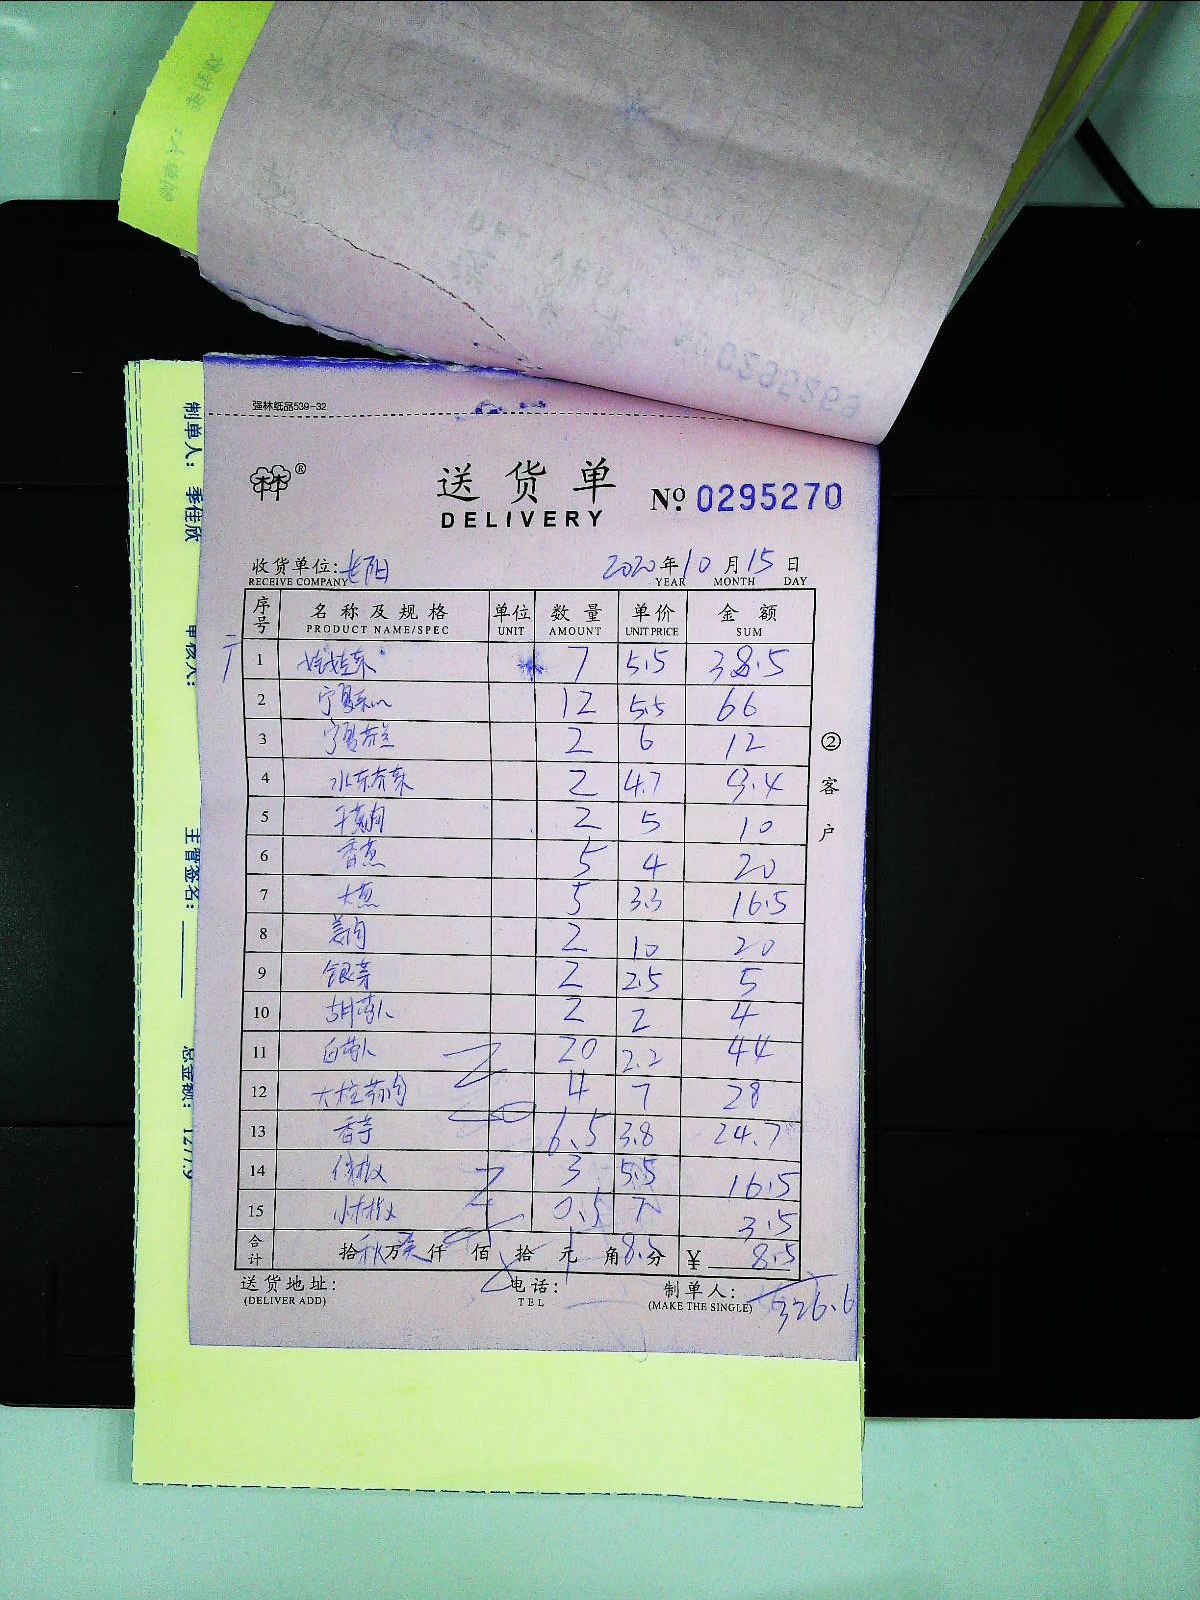 强林纸品539-32
林®
送货单
DELIVERY
Nº 0295270
收货单位: 长阳
RECEIVE COMPANY
2020年10月15日
YEAR MONTH DAY
序号 名称及规格 单位 数量 单价 金额
PRODUCT NAME/SPEC UNIT AMOUNT UNIT PRICE SUM
1 娃娃菜 7 5.5 38.5
2 宁夏菜心 12 5.5 66
3 宁夏芥兰 2 6 12
4 水东芥菜 2 4.7 9.4
5 2 5 10
6 香葱 5 4 20
7 大葱 5 3.3 16.5
8 姜肉 2 10 20
9 银芽 2 2.5 5
10 胡萝卜 2 2 4
11 白萝卜 20 2.2 44
12 4 7 28
13 香芋 6.5 3.8 24.7
14 3 5.5 16.5
15 小米椒 0.5 7 3.5
合计 拾 万 仟 佰 拾 元 角 8.5 分 ¥ 8.5
送货地址: 电话: 制单人:
(DELIVER ADD) TEL (MAKE THE SINGLE)
326.6
②客户
制单人: 季佳欣
审核人:
主管签名:
总金额: 1277.9
0295269